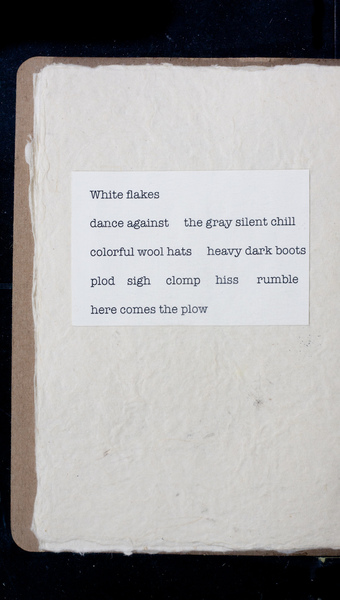 White flakes
dance against the gray silent chill
colorful wool hats heavy dark boots
plod sigh clomp hiss rumble
here comes the plow